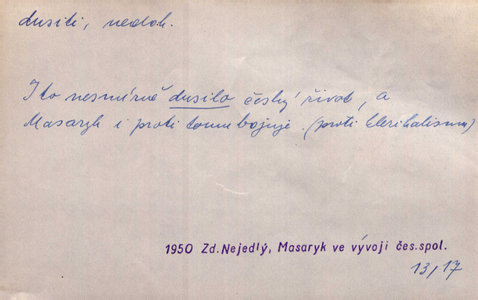 dusiti, nedok.
I to nesmírně dusilo český život, a
Masaryk i proti tomu bojuje. (proti klerikalismu)
1950 Zd.Nejedlý, Masaryk ve vývoji čes.spol.
13/17